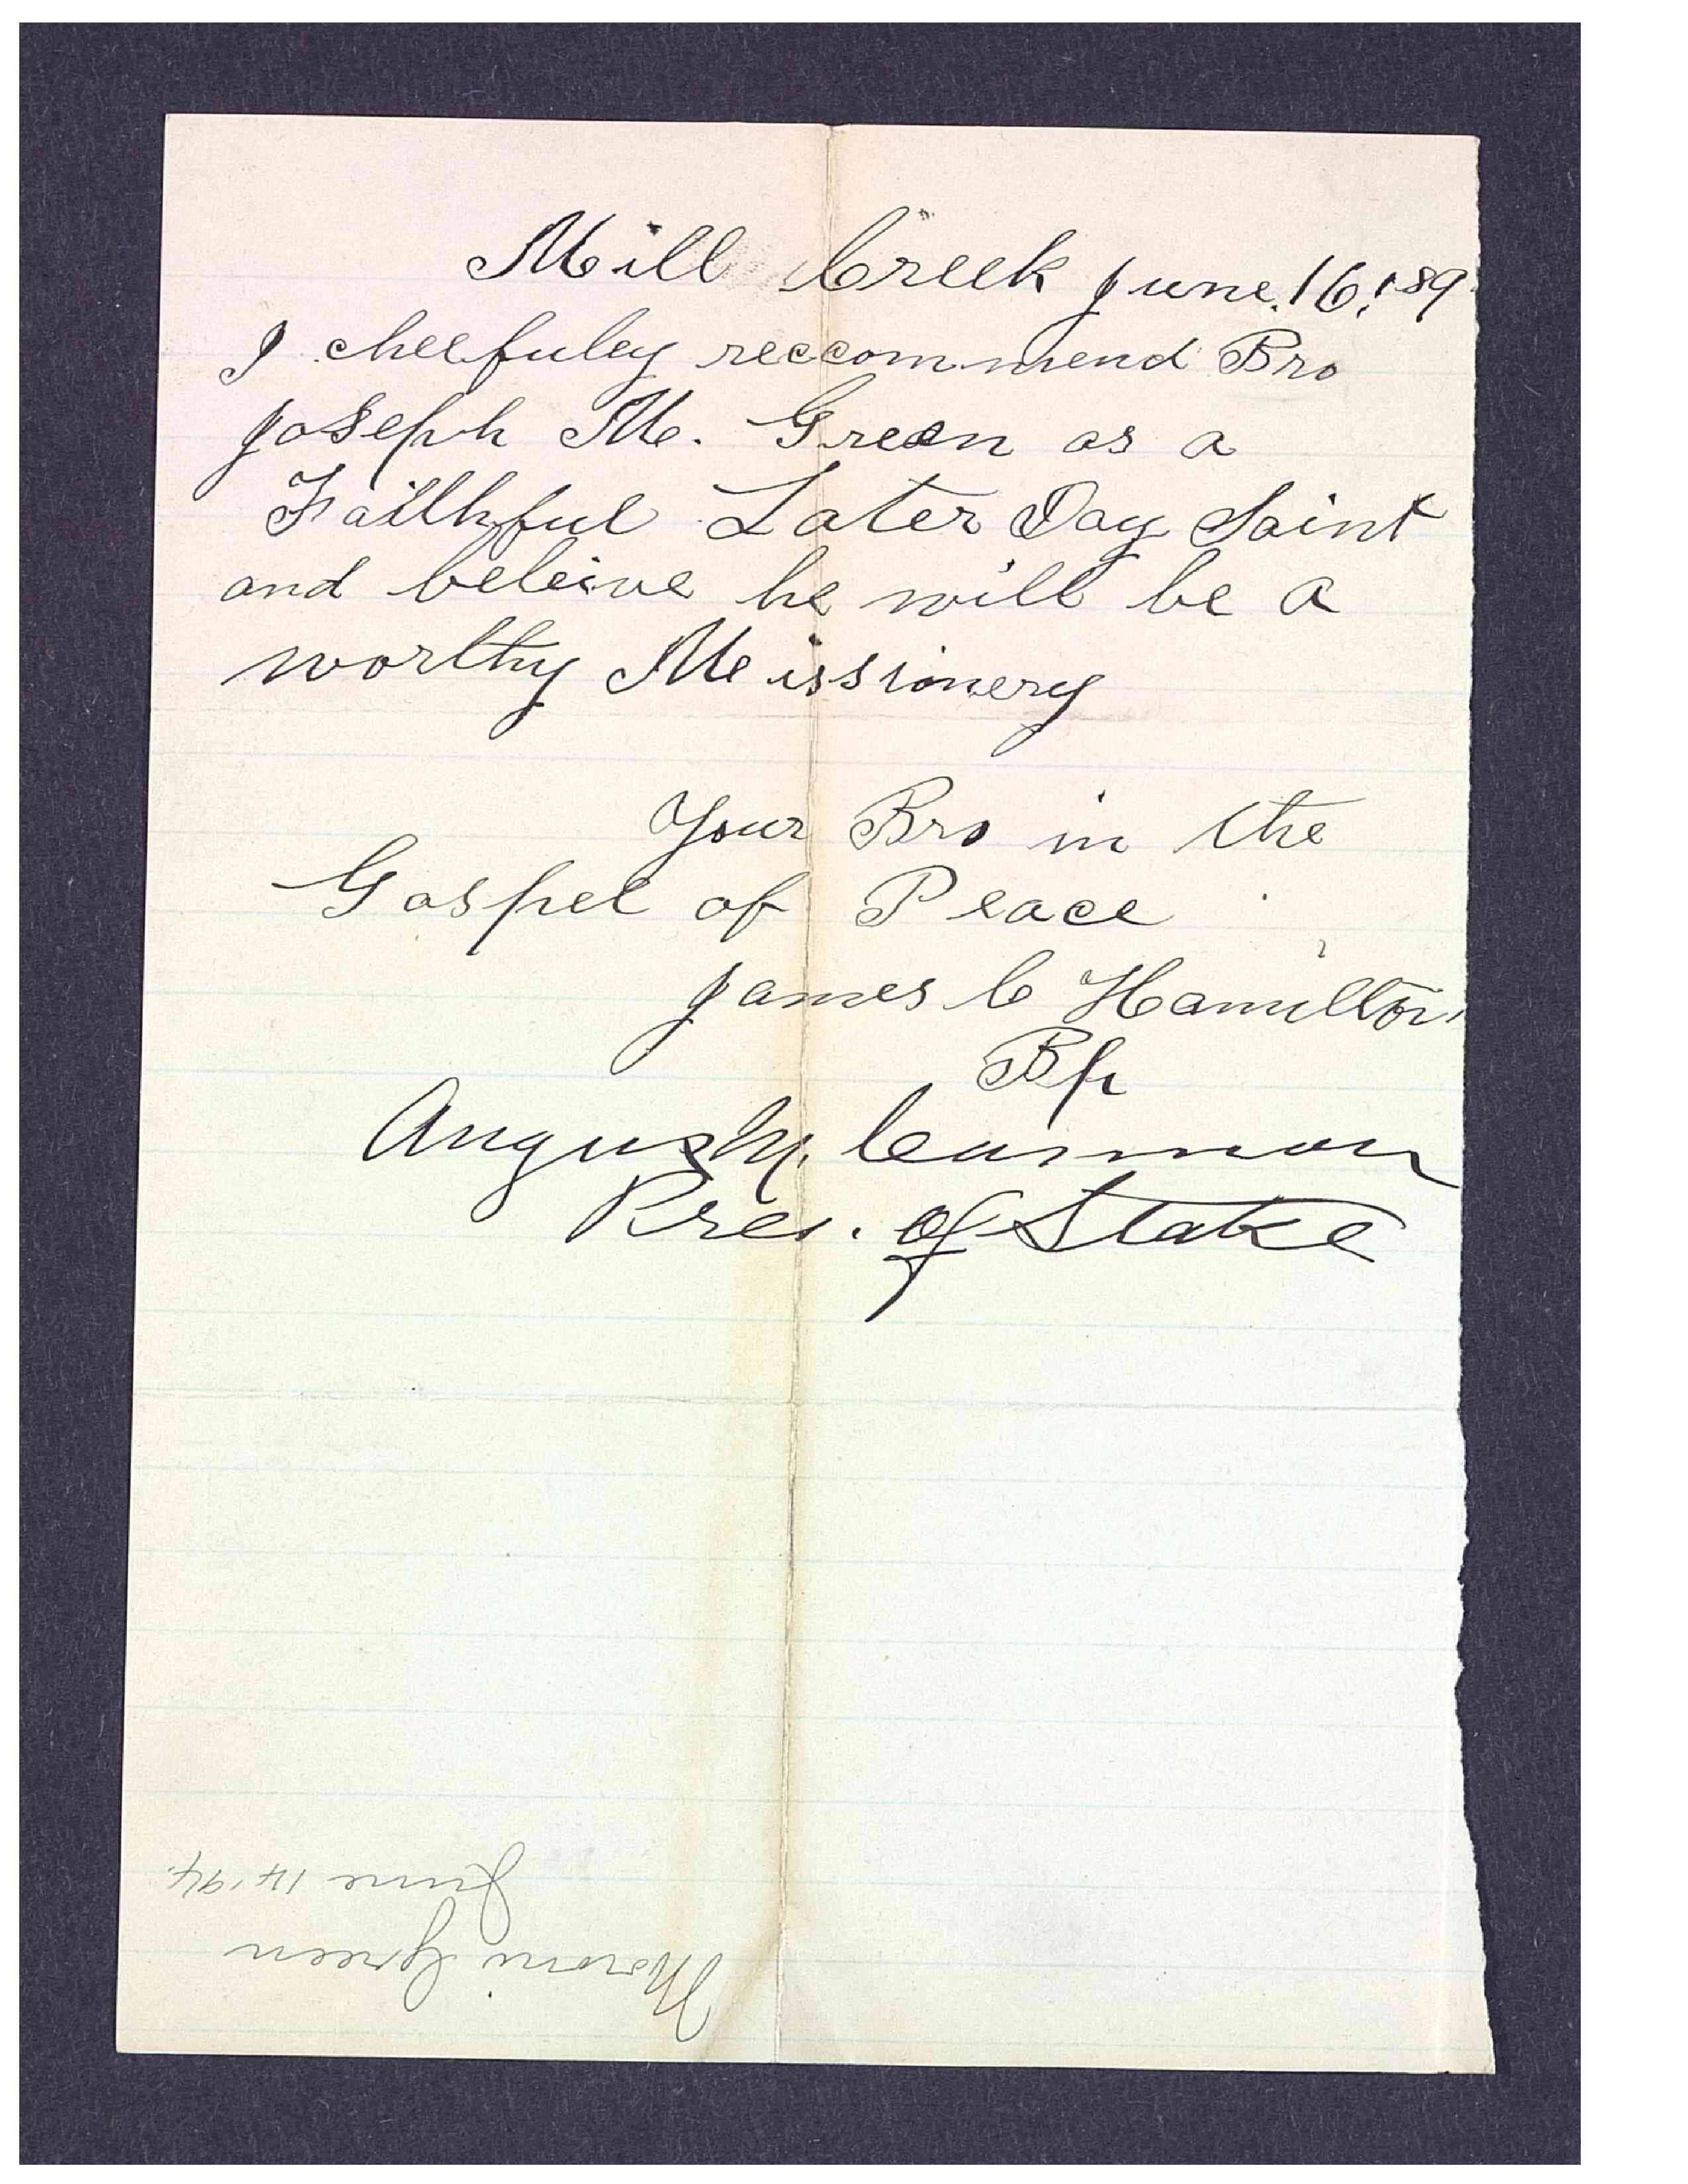 Mill Creek June. 16, 189
I cheefuley reccommend Bro
Joseph M. Green as a
Faithful Later Day Saint
and beleive he will be a
worthy Missionery
Your Bro in the
Gospel of Peace
James C Hamilton
Bp
Angus M. Cannon
Pres. of Stake
Moroni Green
June 14 '94